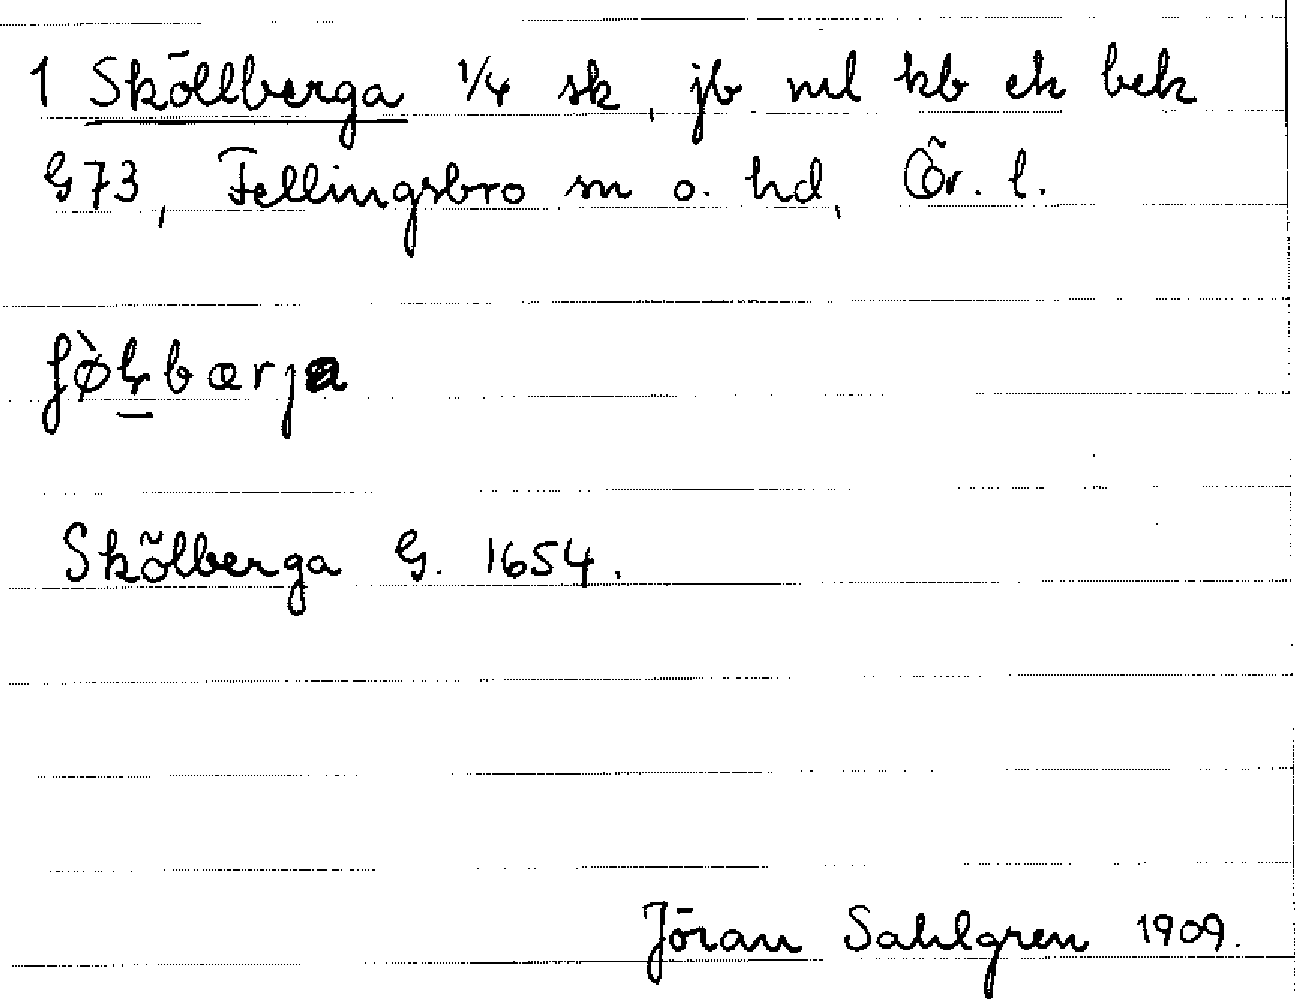 1 Sköllberga 1/4 sk, jb ml kb ek bek
G73, Fellingsbro sn o. hd, Ör. l.
Skölberga G. 1654.
Jöran Sahlgren 1909.